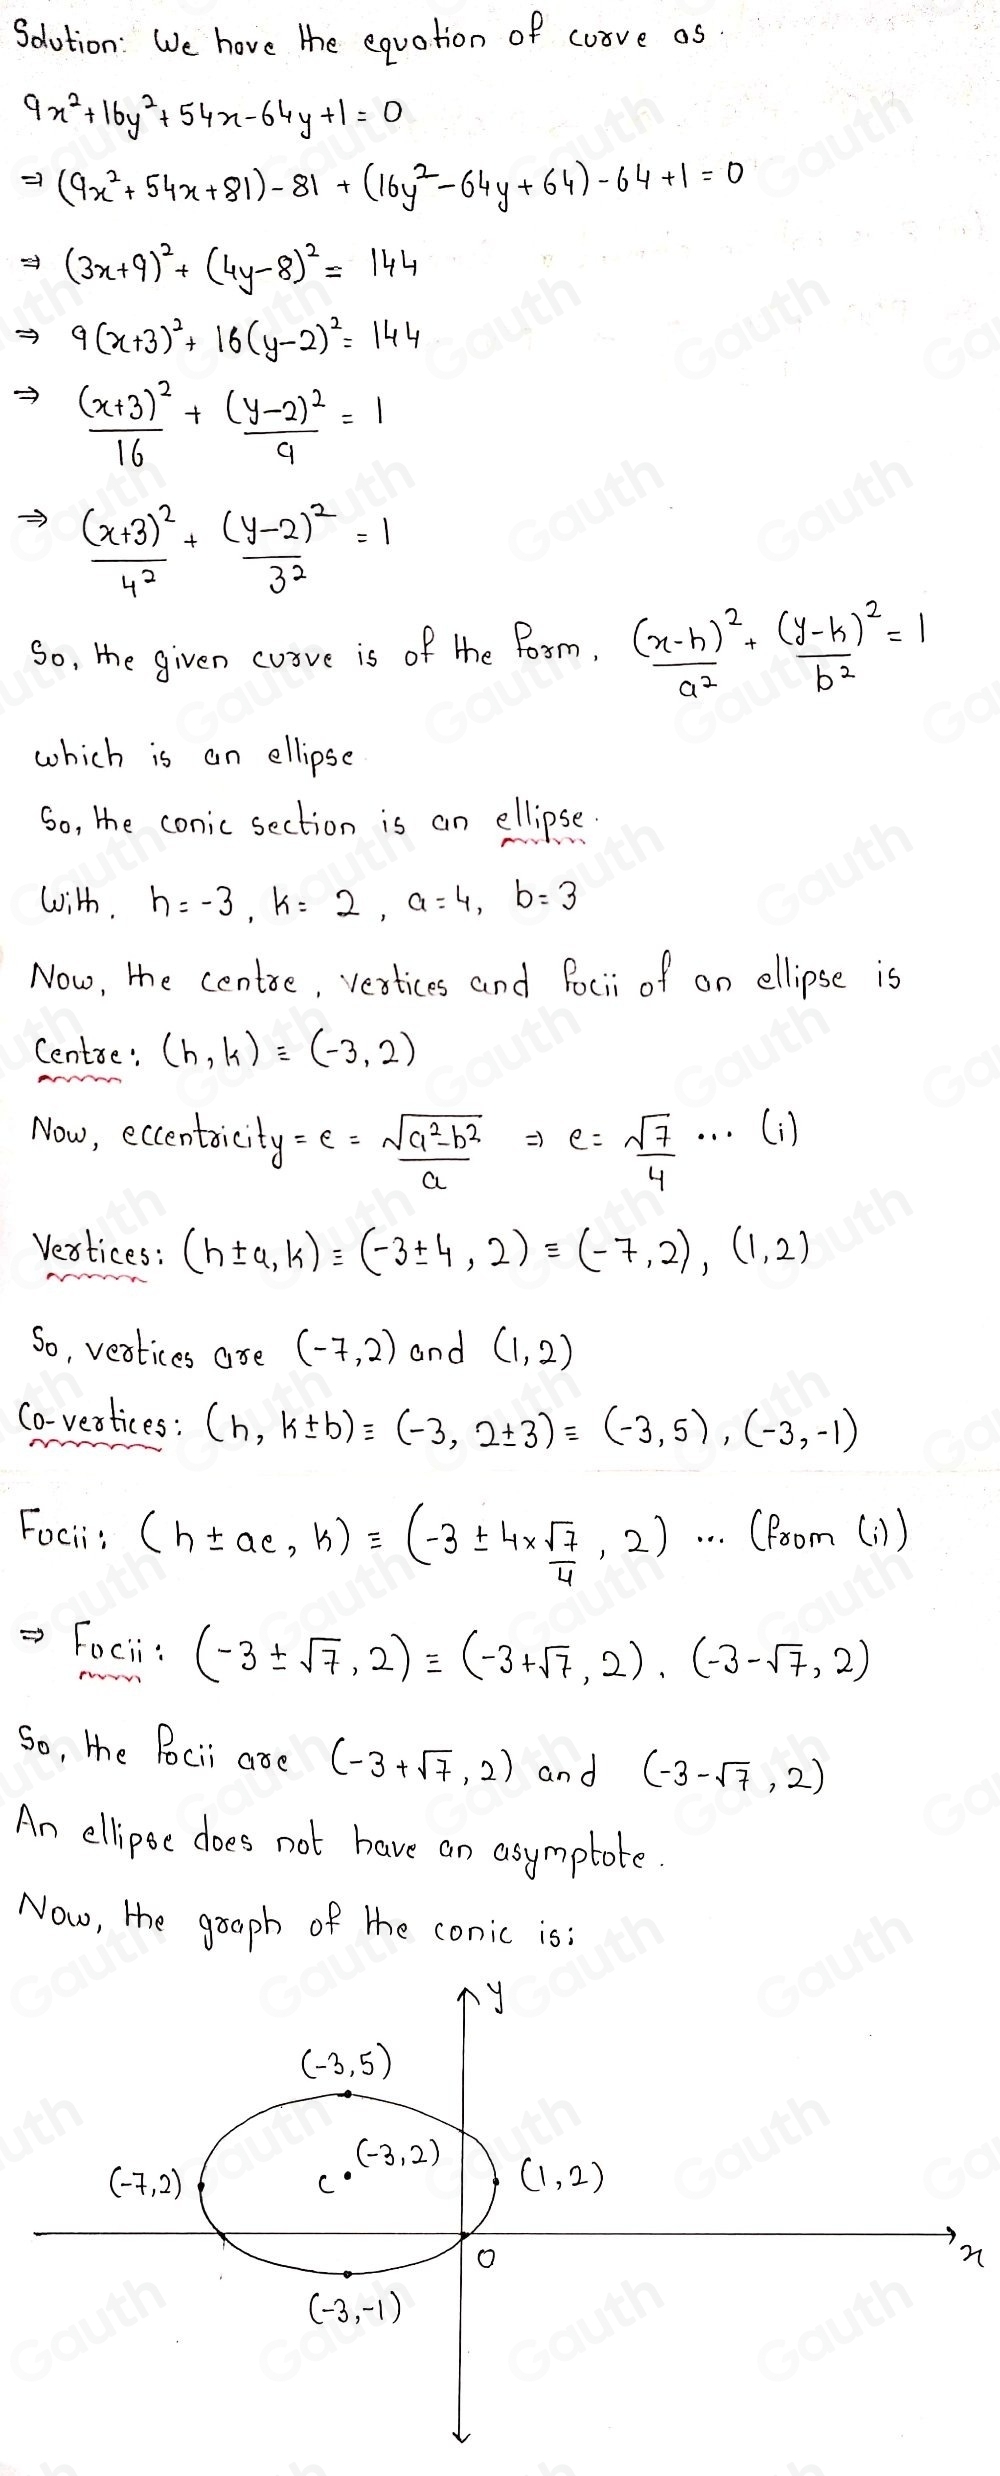 Solution: We have the equation of curve as.
9x²+16y²+54x-64y+1=0
⇒ (9x²+54x+81)-81+(16y²-64y+64)-64+1=0
⇒ (3x+9)²+(4y-8)²= 144
⇒ 9(x+3)²+16(y-2)²= 144
⇒ (x+3)²/16 + (y-2)²/9 = 1
⇒ (x+3)²/4² + (y-2)²/3² = 1
So, the given curve is of the form, (x-h)²/a² + (y-k)²/b² = 1
which is an ellipse
So, the conic section is an ellipse.
With, h=-3, k= 2, a=4, b=3
Now, the centre, vertices and focii of an ellipse is
Centre: (h,k) ≡ (-3,2)
Now, eccentricity = e = √(a²-b²)/a ⇒ e= √7/4 ... (i)
Vertices: (h±a,k) ≡ (-3±4, 2) ≡ (-7,2), (1,2)
So, vertices are (-7,2) and (1,2)
Co-vertices: (h, k±b) ≡ (-3, 2±3) ≡ (-3,5), (-3,-1)
Focii: (h ± ae, k) ≡ (-3 ± 4×√7/4, 2) ... (from (i))
⇒ Focii: (-3 ± √7, 2) ≡ (-3+√7, 2), (-3-√7, 2)
So, the focii are (-3+√7, 2) and (-3-√7, 2)
An ellipse does not have an asymptote.
Now, the graph of the conic is:
y
(-3,5)
(-3,2)
(-7,2)
C
(1,2)
O
x
(-3,-1)
Gauth